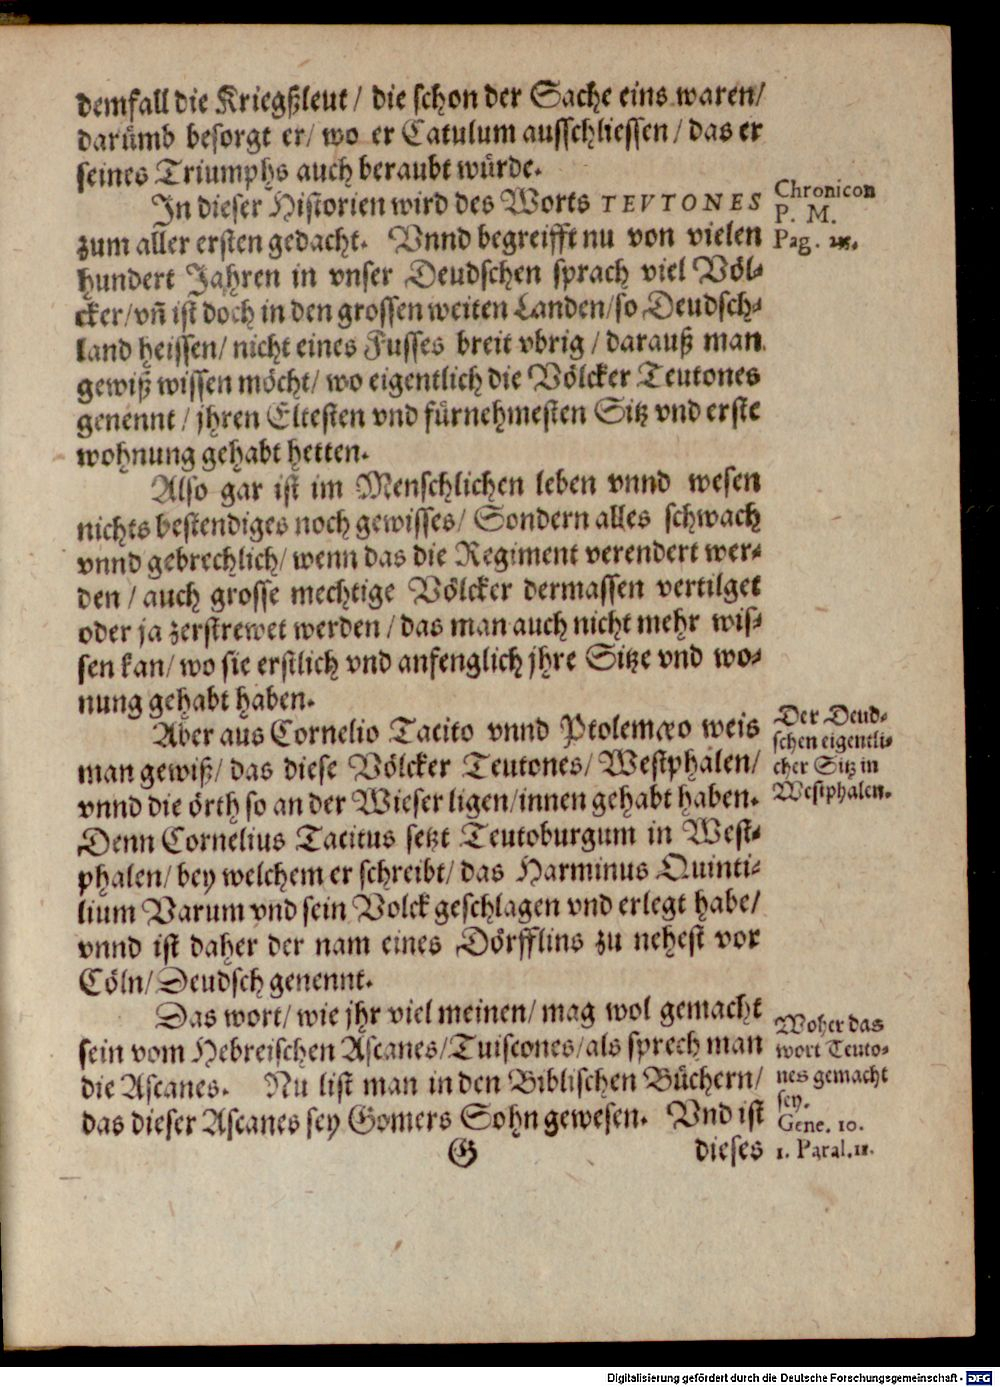 demfall die Kriegßleut / die schon der Sache eins waren/
darümb besorgt er/ wo er Catulum ausschliessen / das er
seines Triumphs auch beraubt würde.
In dieser Historien wird des Worts TEVTONES
zum aller ersten gedacht. Vnnd begreifft nu von vielen
hundert Jahren in vnser Deudschen sprach viel Völ-
cker/ vñ ist doch in den grossen weiten Landen/ so Deudsch-
land heissen/ nicht eines Fusses breit vbrig / darauß man
gewiß wissen möcht/ wo eigentlich die Völcker Teutones
genennt / jhren Eltesten vnd fürnehmesten Sitz vnd erste
wohnung gehabt hetten.
Chronicon
P. M.
Pag.
Also gar ist im Menschlichen leben vnnd wesen
nichts bestendiges noch gewisses/ Sondern alles schwach
vnnd gebrechlich/ wenn das die Regiment verendert wer-
den / auch grosse mechtige Völcker dermassen vertilget
oder ja zerstrewet werden / das man auch nicht mehr wis-
sen kan/ wo sie erstlich vnd anfenglich jhre Sitze vnd wo-
nung gehabt haben.
Aber aus Cornelio Tacito vnnd Ptolemæo weis
man gewiß/ das diese Völcker Teutones/ Westphalen/
vnnd die örth so an der Wieser ligen/ innen gehabt haben.
Denn Cornelius Tacitus setzt Teutoburgum in West-
phalen/ bey welchem er schreibt/ das Harminus Quinti-
lium Varum vnd sein Volck geschlagen vnd erlegt habe/
vnnd ist daher der nam eines Dörfflins zu nehest vor
Cöln/ Deudsch genennt.
Der Deud-
schen eigentli-
cher Sitz in
Westphalen.
Das wort/ wie jhr viel meinen/ mag wol gemacht
sein vom Hebreischen Ascanes/ Tuiscones/ als sprech man
die Ascanes. Nu list man in den Biblischen Büchern/
das dieser Ascanes sey Gomers Sohn gewesen. Vnd ist
Woher das
wort Teuto-
nes gemacht
sey.
Gene. 10.
1. Paral. 11.
G dieses
Digitalisierung gefördert durch die Deutsche Forschungsgemeinschaft - DFG